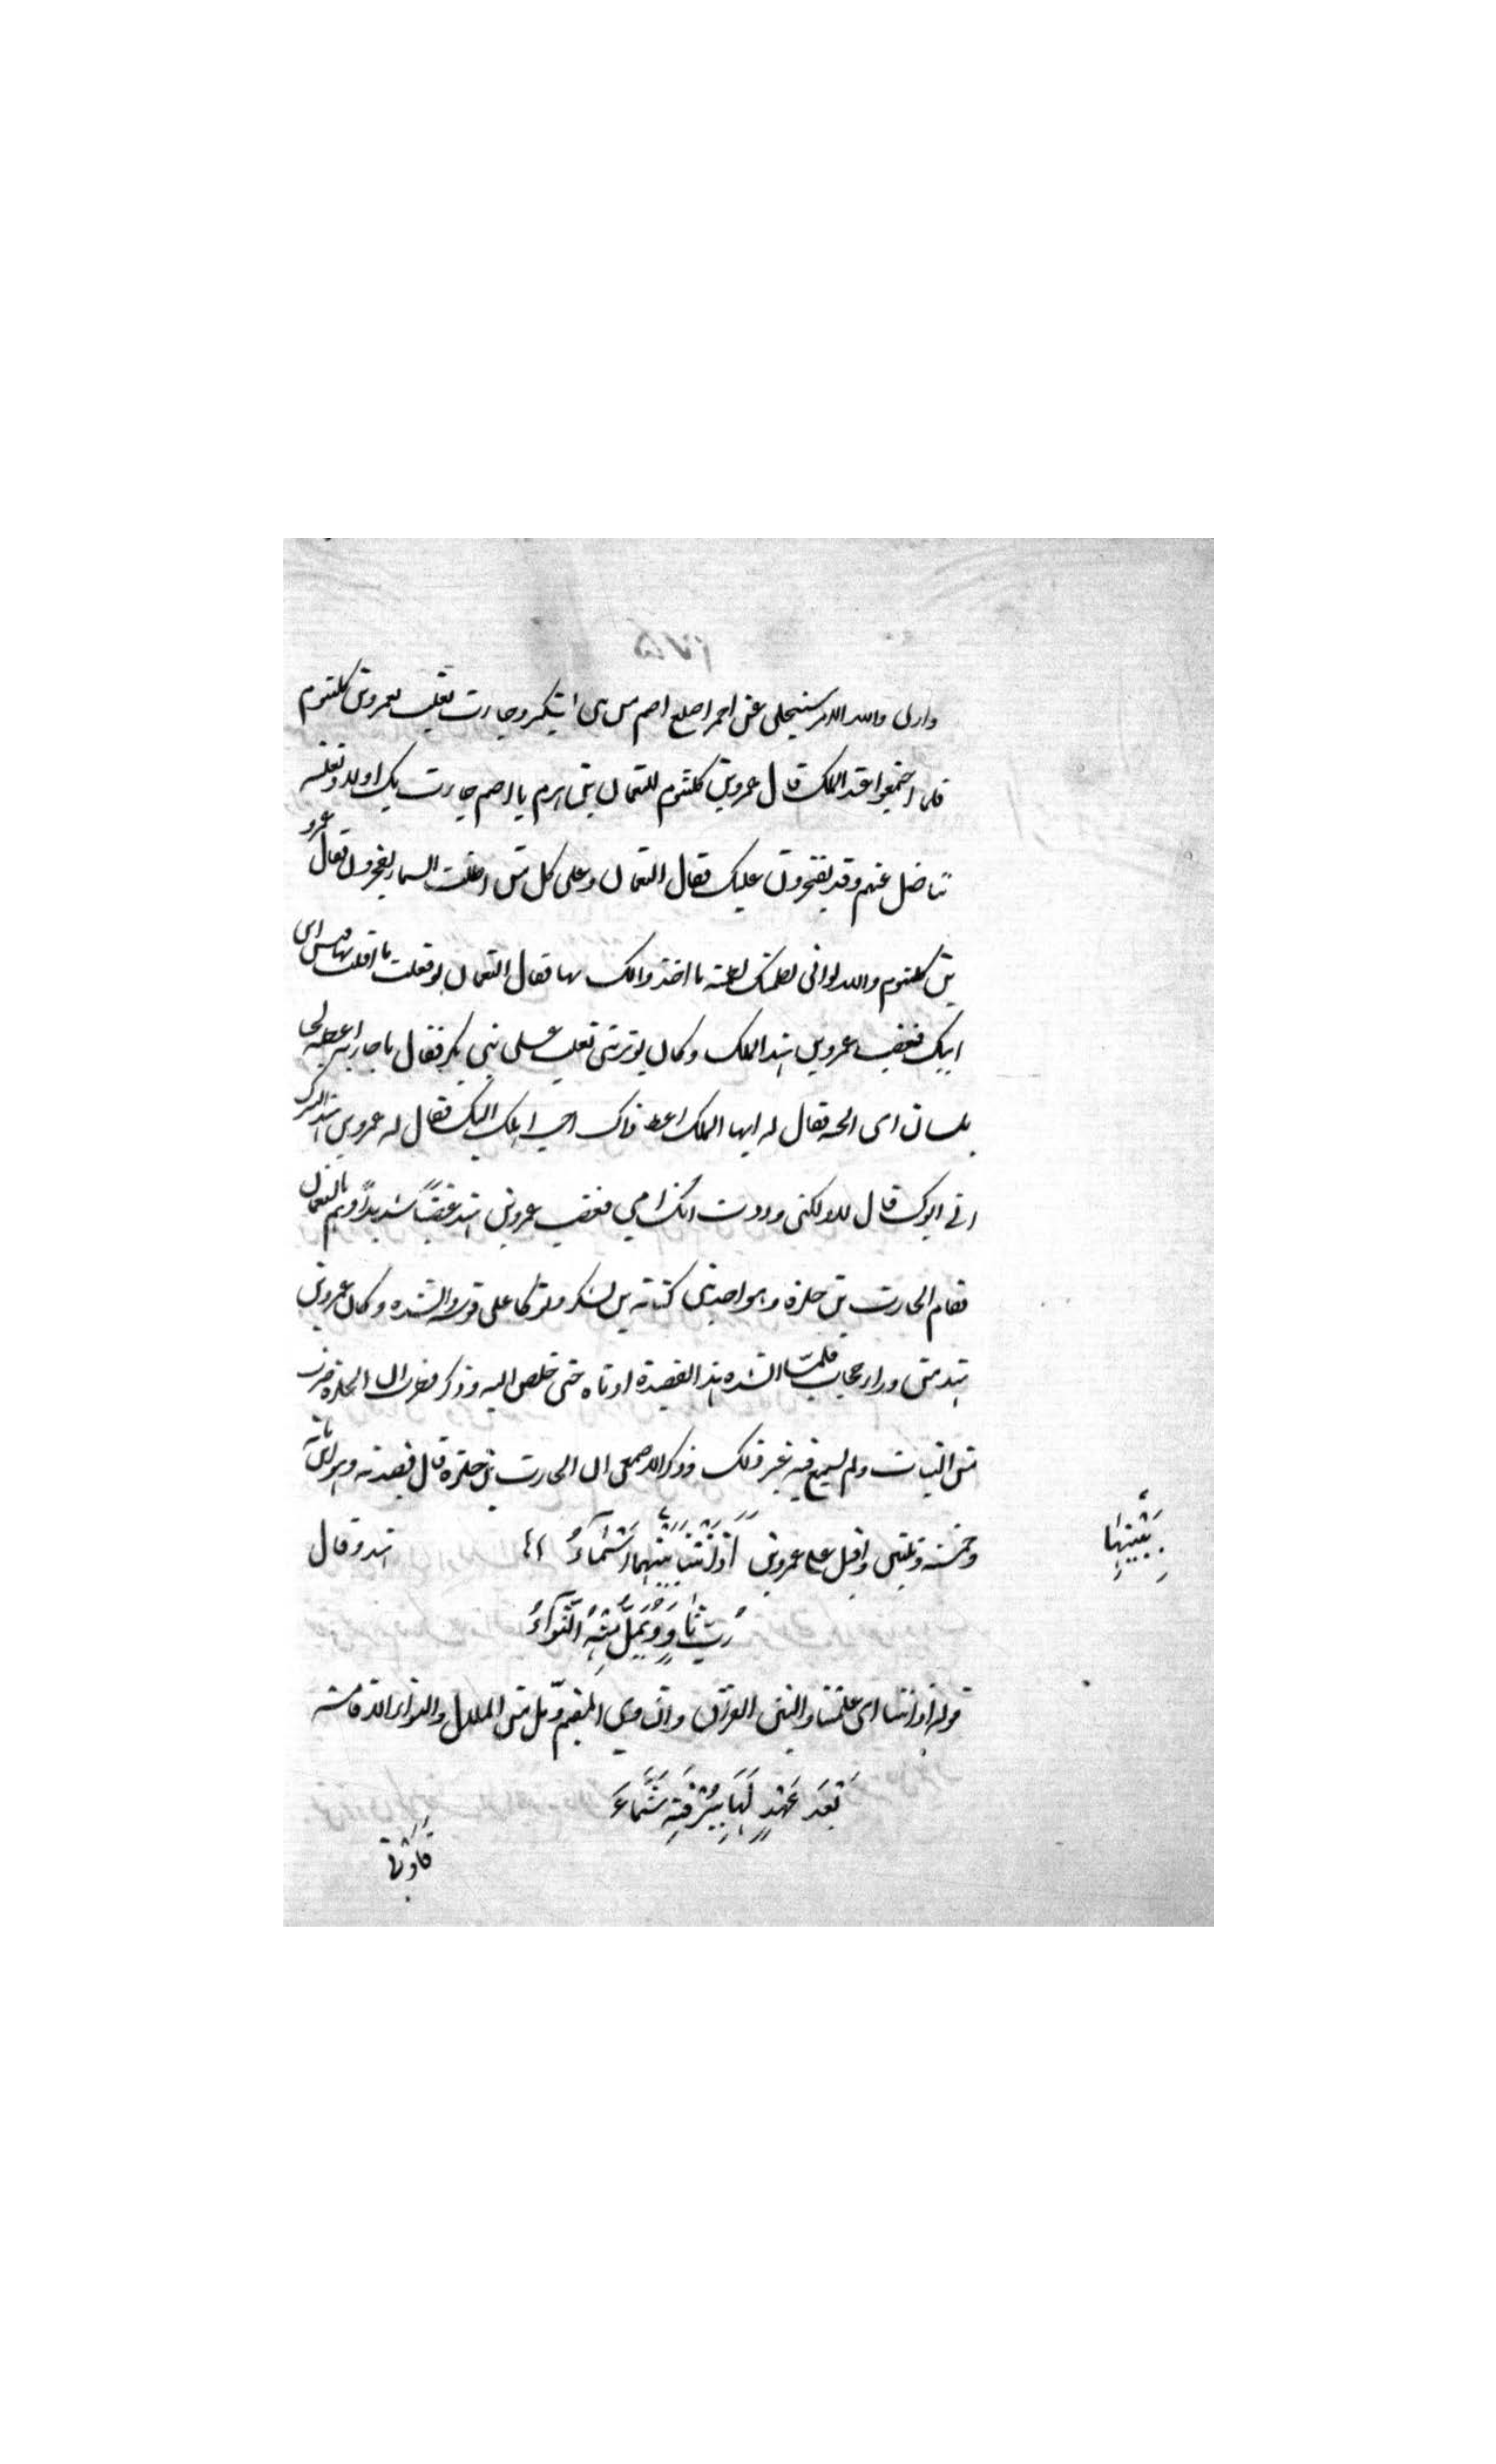 وارى والله الامر سينجلى عن احمر اصلع اصم من بنى يشكر وجارت تغلب بعمرو بن كلثوم
فلما اجتمعوا عند الملك قال عمرو بن كلثوم للنعمان بن هرم يا اصم جارت بك اولاد ثعلبه
تناضل عنهم وقد يفخرون عليك فقال النعمان وعلى كل من اظلت السمار يفخرون فقال عمرو
بن كلثوم والله لو انى لطمتك لطمة ما اخذوا لك بها فقال النعمان لو فعلت ما افلت بها
ابيك فغضب عمرو بن هند الملك وكان يوثر بنى تغلب على بنى بكر فقال يا جارية اعطيه لحيا
بلسان اى الحيه فقال له ايها الملك اعط ذاك احب اهلك اليك فقال له عمرو بن هند ايسرك
انى ابوك قال لا ولكنى وددت انك امى فغضب عمرو بن هند غضبًا شديدًا وهم بالنعمان
فقام الحارث بن حلزة وهو احد بنى كنانه بن يشكر وتوكا على قوسه وانشده وكان عمرو بن
هند من ورار حجاب فلمّا انشده هذا القصيدة ادناه حتى خلص اليه وذكر ان الحلزة ضرب
من النبات ولم يسمع فيه غير ذلك وذكر الاصمعى ان الحارث بن حلزة قال قصيدته وهو ابن مائة
وخمسة وثلثين واقبل على عمرو بن هند وقال
آذَنَتْنَا بِبَيْنِهَا اَسْمَآءُ
بِبَيْنِهَا
رُبَّ ثَاوٍ وَيُمَلُّ مِنْهُ الثَّوَآءُ
قوله آذنتنا اى علمتنا والبين الفراق والثاوى المقيم ويمل من الملال والثوار الاقامة
بَعْدَ عَهْدٍ لَهَا بِبُرْقَةِ شَمَّاءَ
فَاَدْنَى